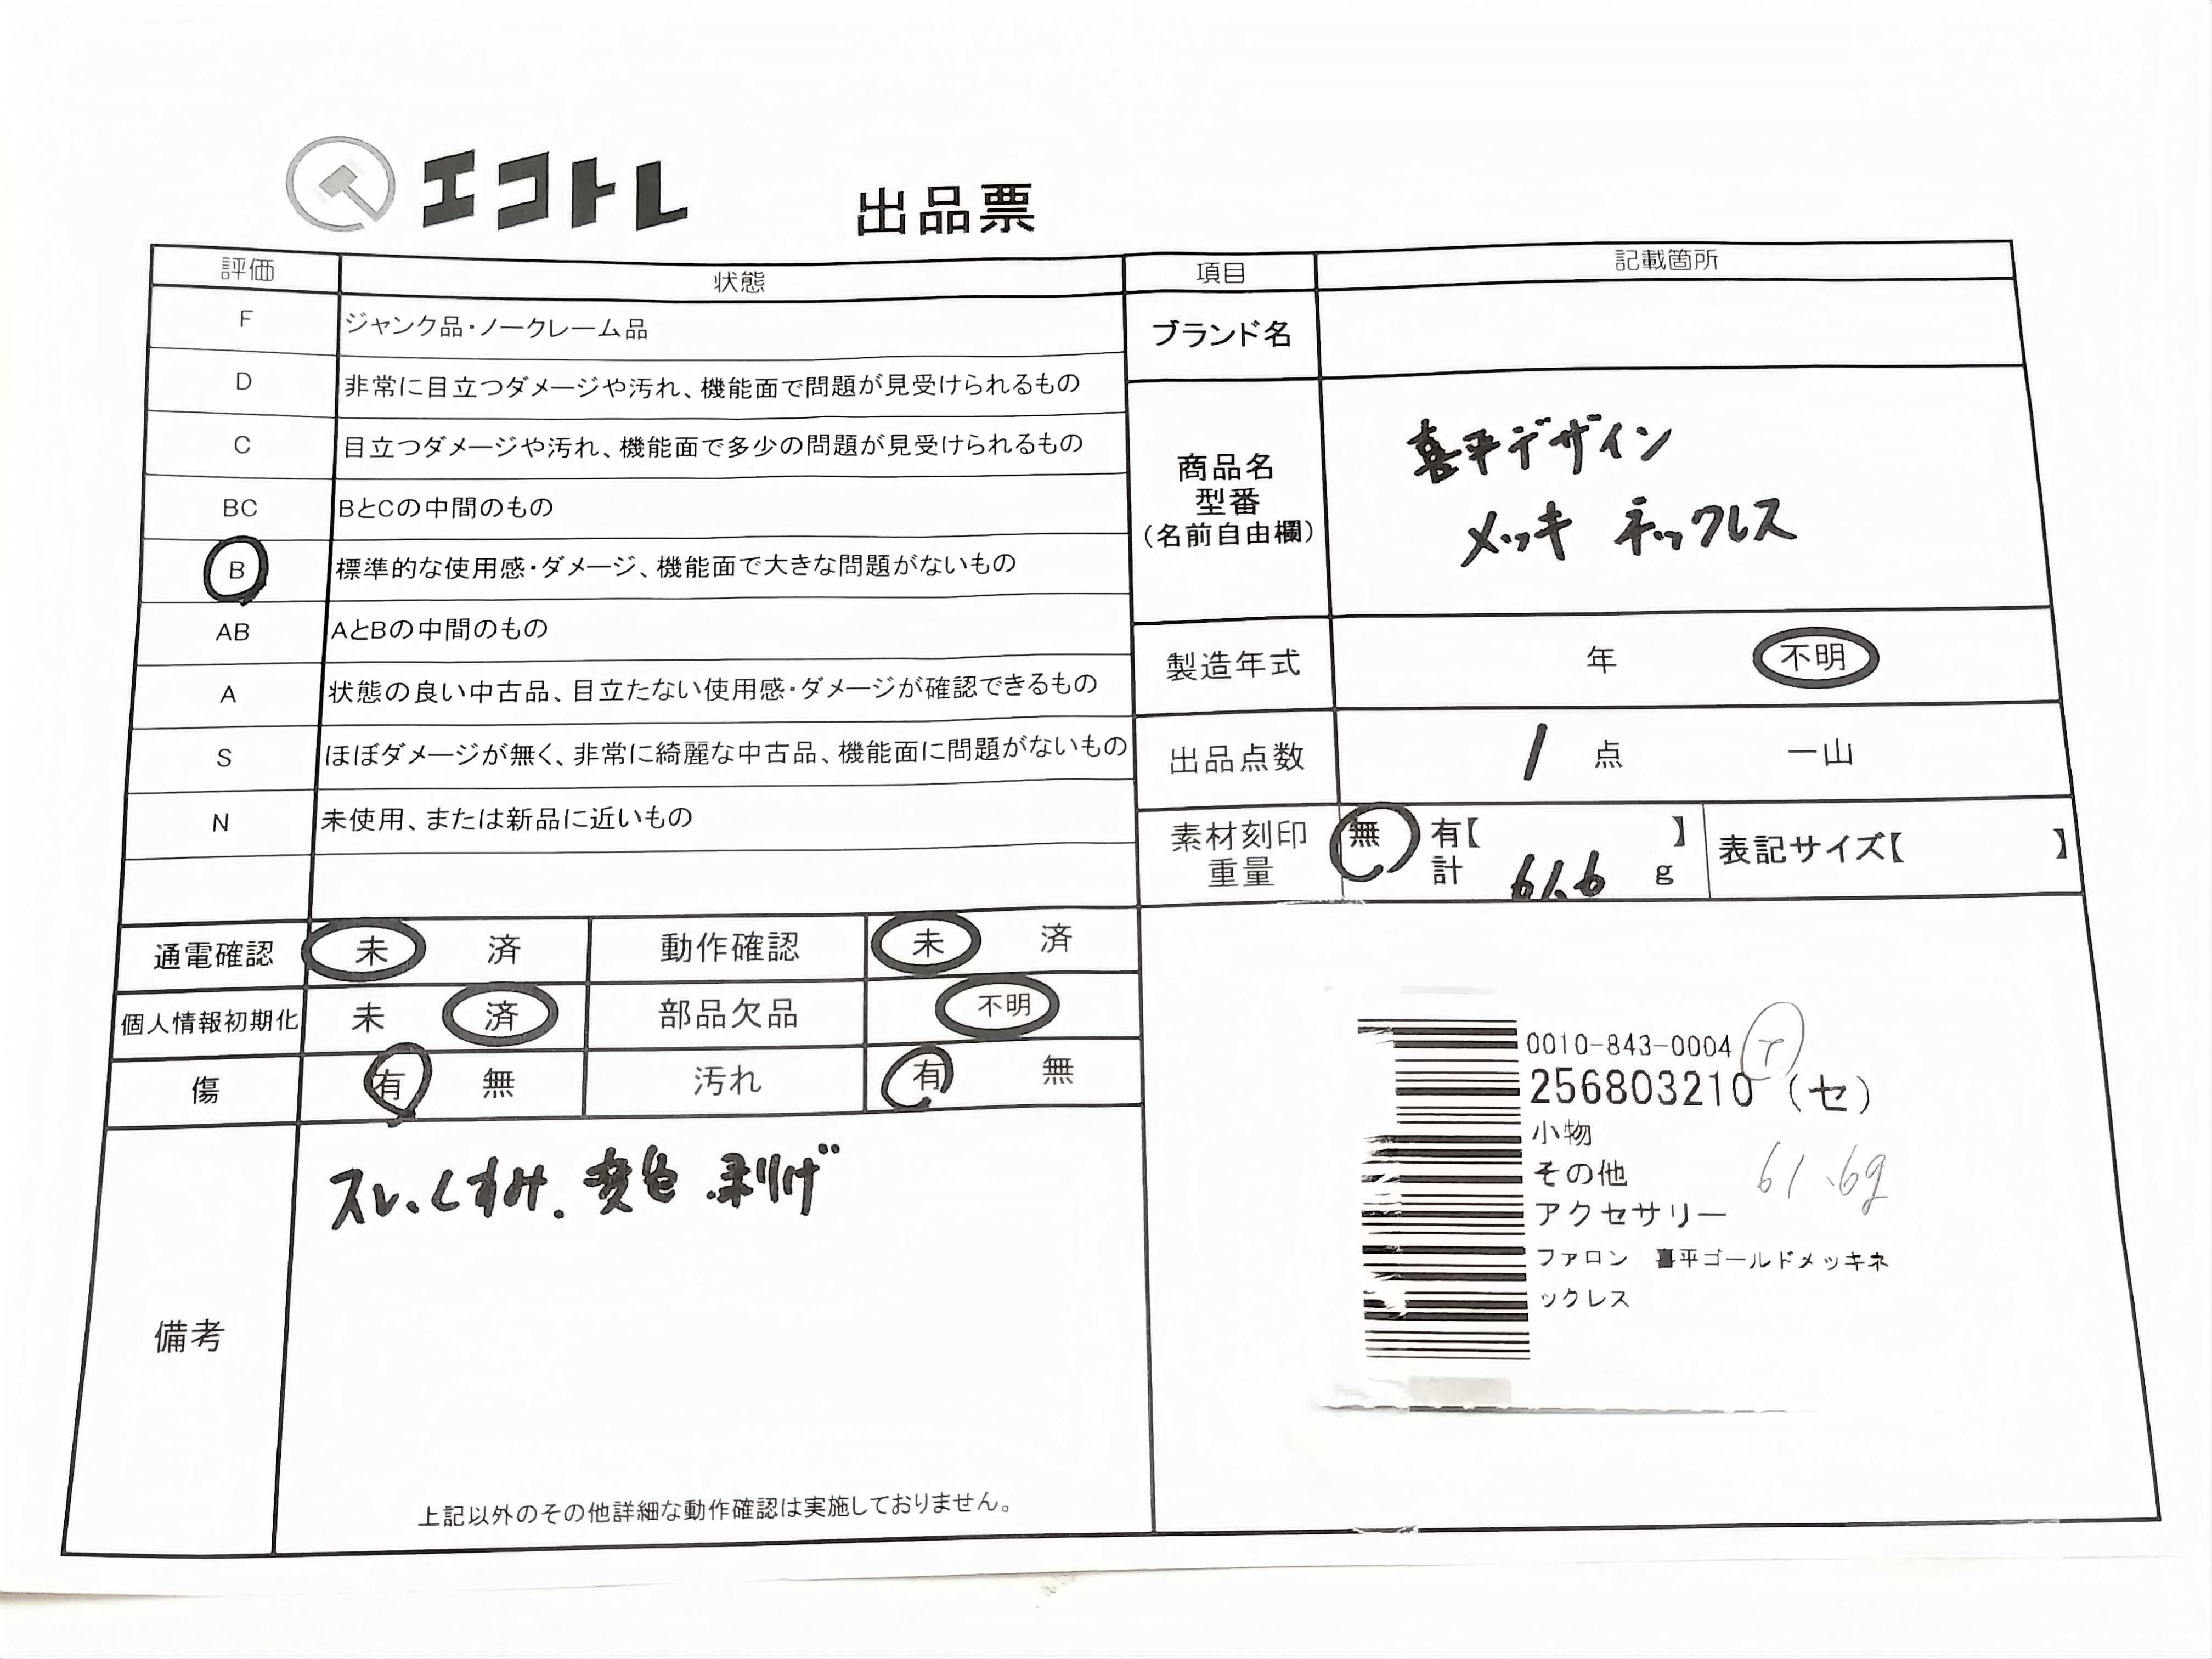 エコトレ 出品票
評価 状態
F ジャンク品・ノークレーム品
D 非常に目立つダメージや汚れ、機能面で問題が見受けられるもの
C 目立つダメージや汚れ、機能面で多少の問題が見受けられるもの
BC BとCの中間のもの
B 標準的な使用感・ダメージ、機能面で大きな問題がないもの
AB AとBの中間のもの
A 状態の良い中古品、目立たない使用感・ダメージが確認できるもの
S ほぼダメージが無く、非常に綺麗な中古品、機能面に問題がないもの
N 未使用、または新品に近いもの
通電確認 未 済 動作確認 未 済
個人情報初期化 未 済 部品欠品 不明
傷 有 無 汚れ 有 無
備考
スレ、くすみ、変色、剥げ
上記以外のその他詳細な動作確認は実施しておりません。
項目 記載箇所
ブランド名
商品名
型番
(名前自由欄)
喜平デザイン
メッキ ネックレス
製造年式 年 不明
出品点数 1 点 一山
素材刻印 無 有【 】
重量 計 61.6 g
表記サイズ【 】
0010-843-0004
256803210 (セ)
小物
その他 61.6g
アクセサリー
ファロン 喜平ゴールドメッキネ
ックレス